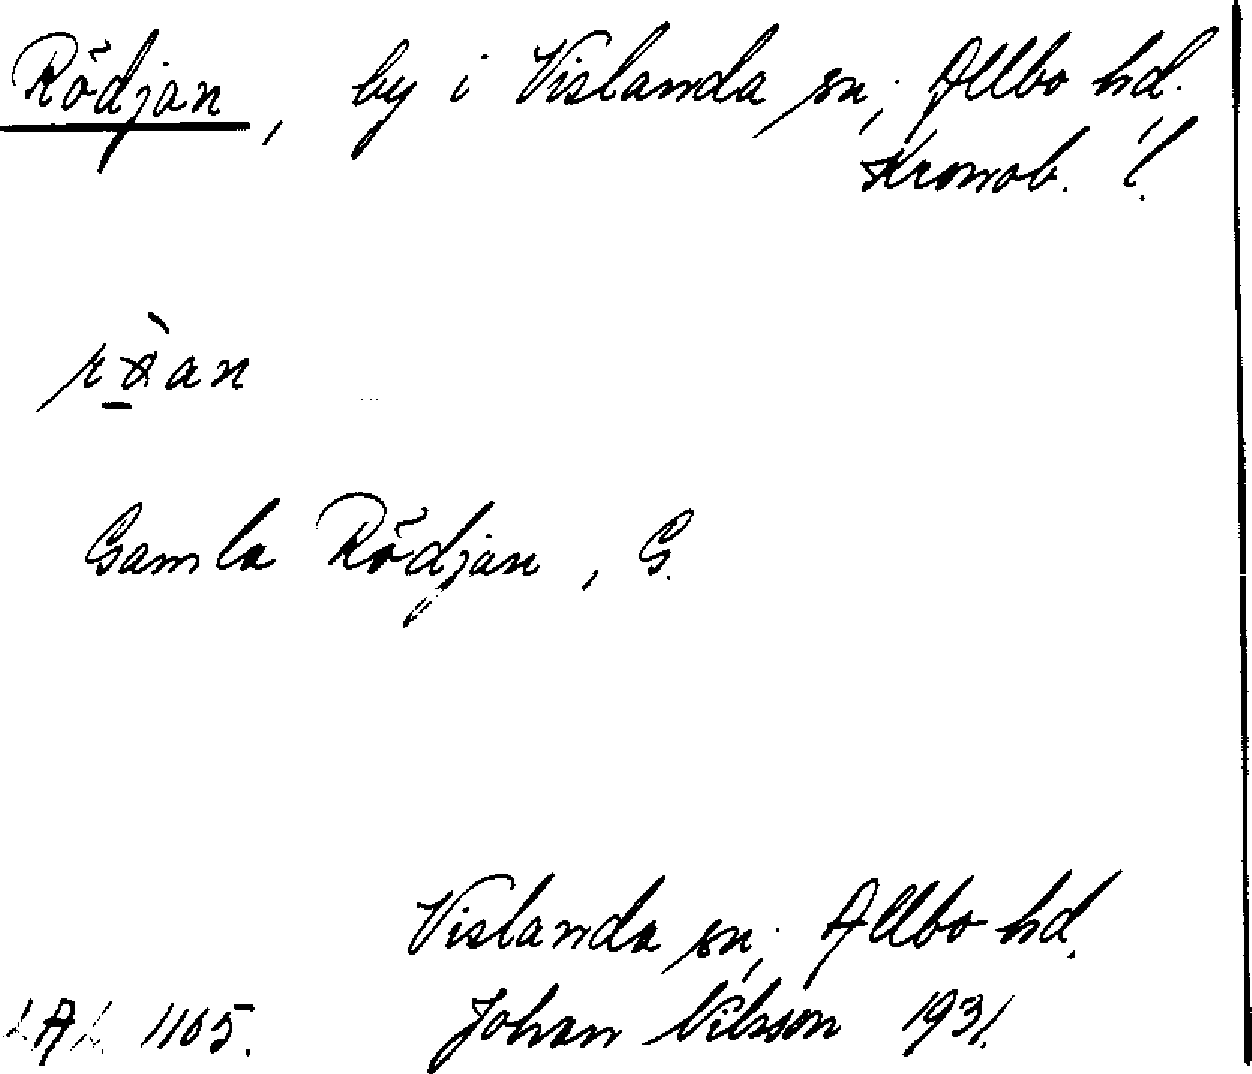 Rödjan, by i Vislanda sn; Allbo hd.
Kronob. l.
Gamla Rödjan, G.
Vislanda sn; Allbo hd.
LAL 1105. Johan Nilsson 1931.